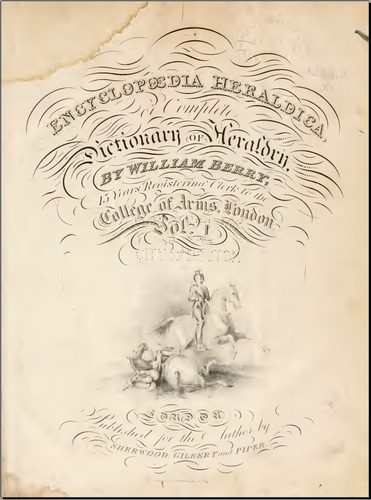 ENCYCLOPŒDIA HERALDICA,
or Complete
Dictionary OF Heraldry,
BY WILLIAM BERRY,
15 Years Registering Clerk to the
College of Arms, London.
Vol. I
LONDON
Published for the Author by
SHERWOOD, GILBERT and PIPER.